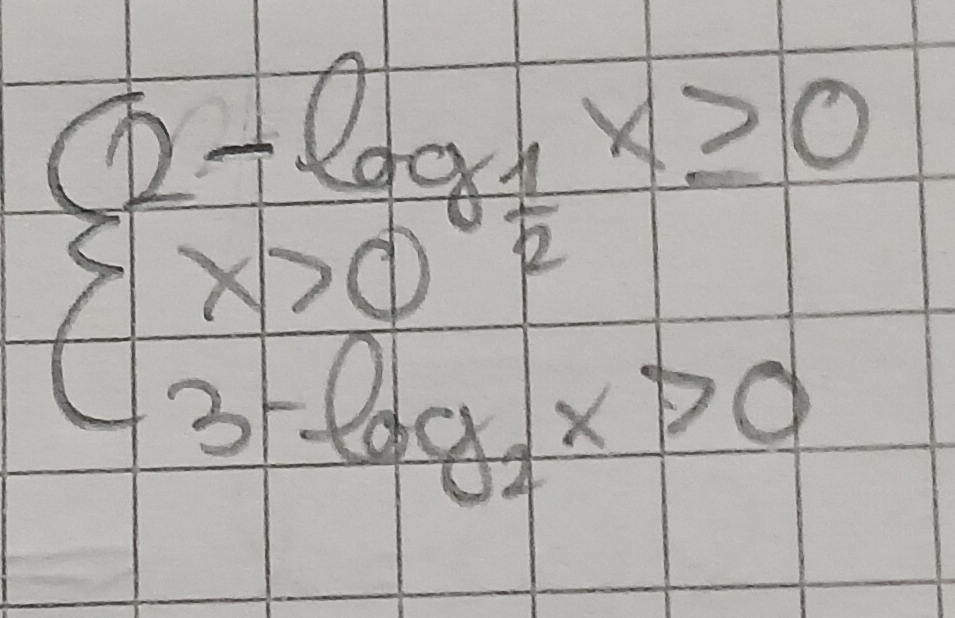 {2 - log_{1/2} x ≥ 0
x > 0
3 - log_2 x > 0